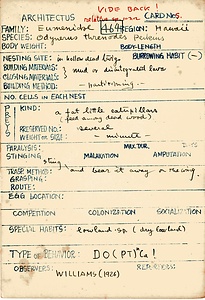 VIDE BACK!
ARCHITECTUS
CARD NOS.
FAMILY: Eumenidae 464 REGION: Hawaii
SPECIES: Odynerus threnodes Perkins
BODY WEIGHT: BODY LENGTH
NESTING SITE: in hollow dead twigs. BURROWING HABIT (-)
BUILDING MATERIALS:
CLOSING MATERIALS: mud or disintegrated lava
BUILDING METHOD: partitioning.
NO. CELLS IN EACH NEST
KIND: a fat little caterpillars
(feed among dead woods)
PRESERVED NO.: several
SIZE WEIGHT: - minute
PARALYSIS: MAX. DUR.
STINGING sting MALAXATION AMPUTATION
TRANSP. METHOD: and bear it away on the wing.
GRASPING:
ROUTE:
EGG LOCATION:
COMPETITION COLONIZATION SOCIALIZATION
SPECIAL HABITS: lowland sp. (dry lowland)
TYPE OF BEHAVIOR: DO(PT)ᵐCa!
OBSERVERS: REPORTERS:
WILLIAMS (1926)